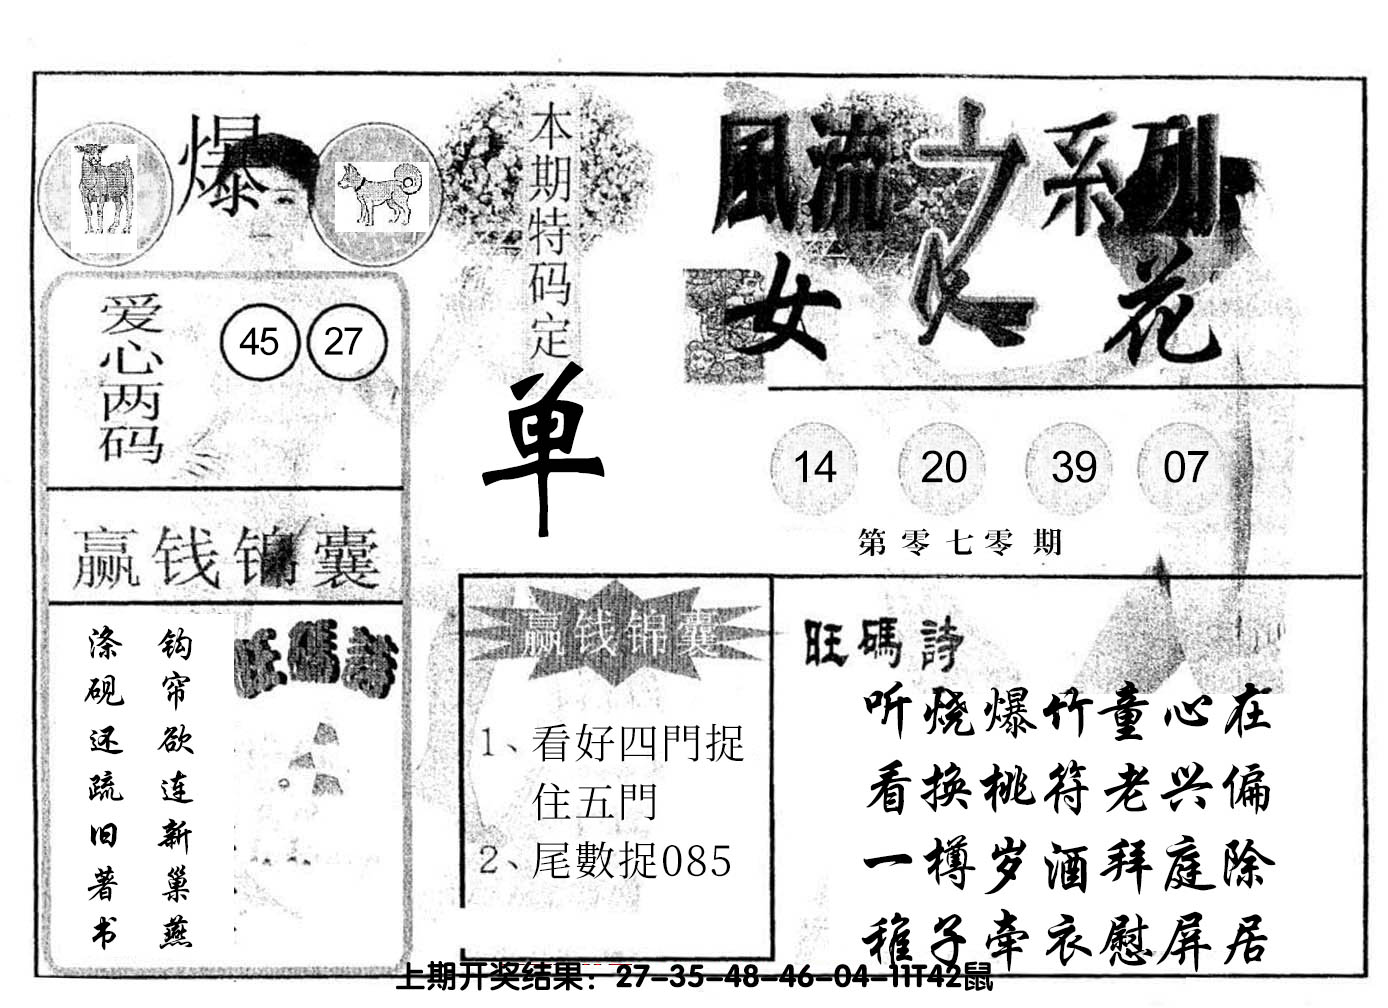 爆
本期特码定
单
風流之系列
女人花
爱心两码
45 27
14 20 39 07
第零七零期
赢钱锦囊
钩帘欲连新巢燕
涤砚还疏旧著书
旺碼詩
赢钱锦囊
1、看好四門捉
住五門
2、尾數捉085
旺碼詩
听烧爆竹童心在
看换桃符老兴偏
一樽岁酒拜庭除
稚子牵衣慰屏居
上期开奖结果：27-35-48-46-04-11T42鼠